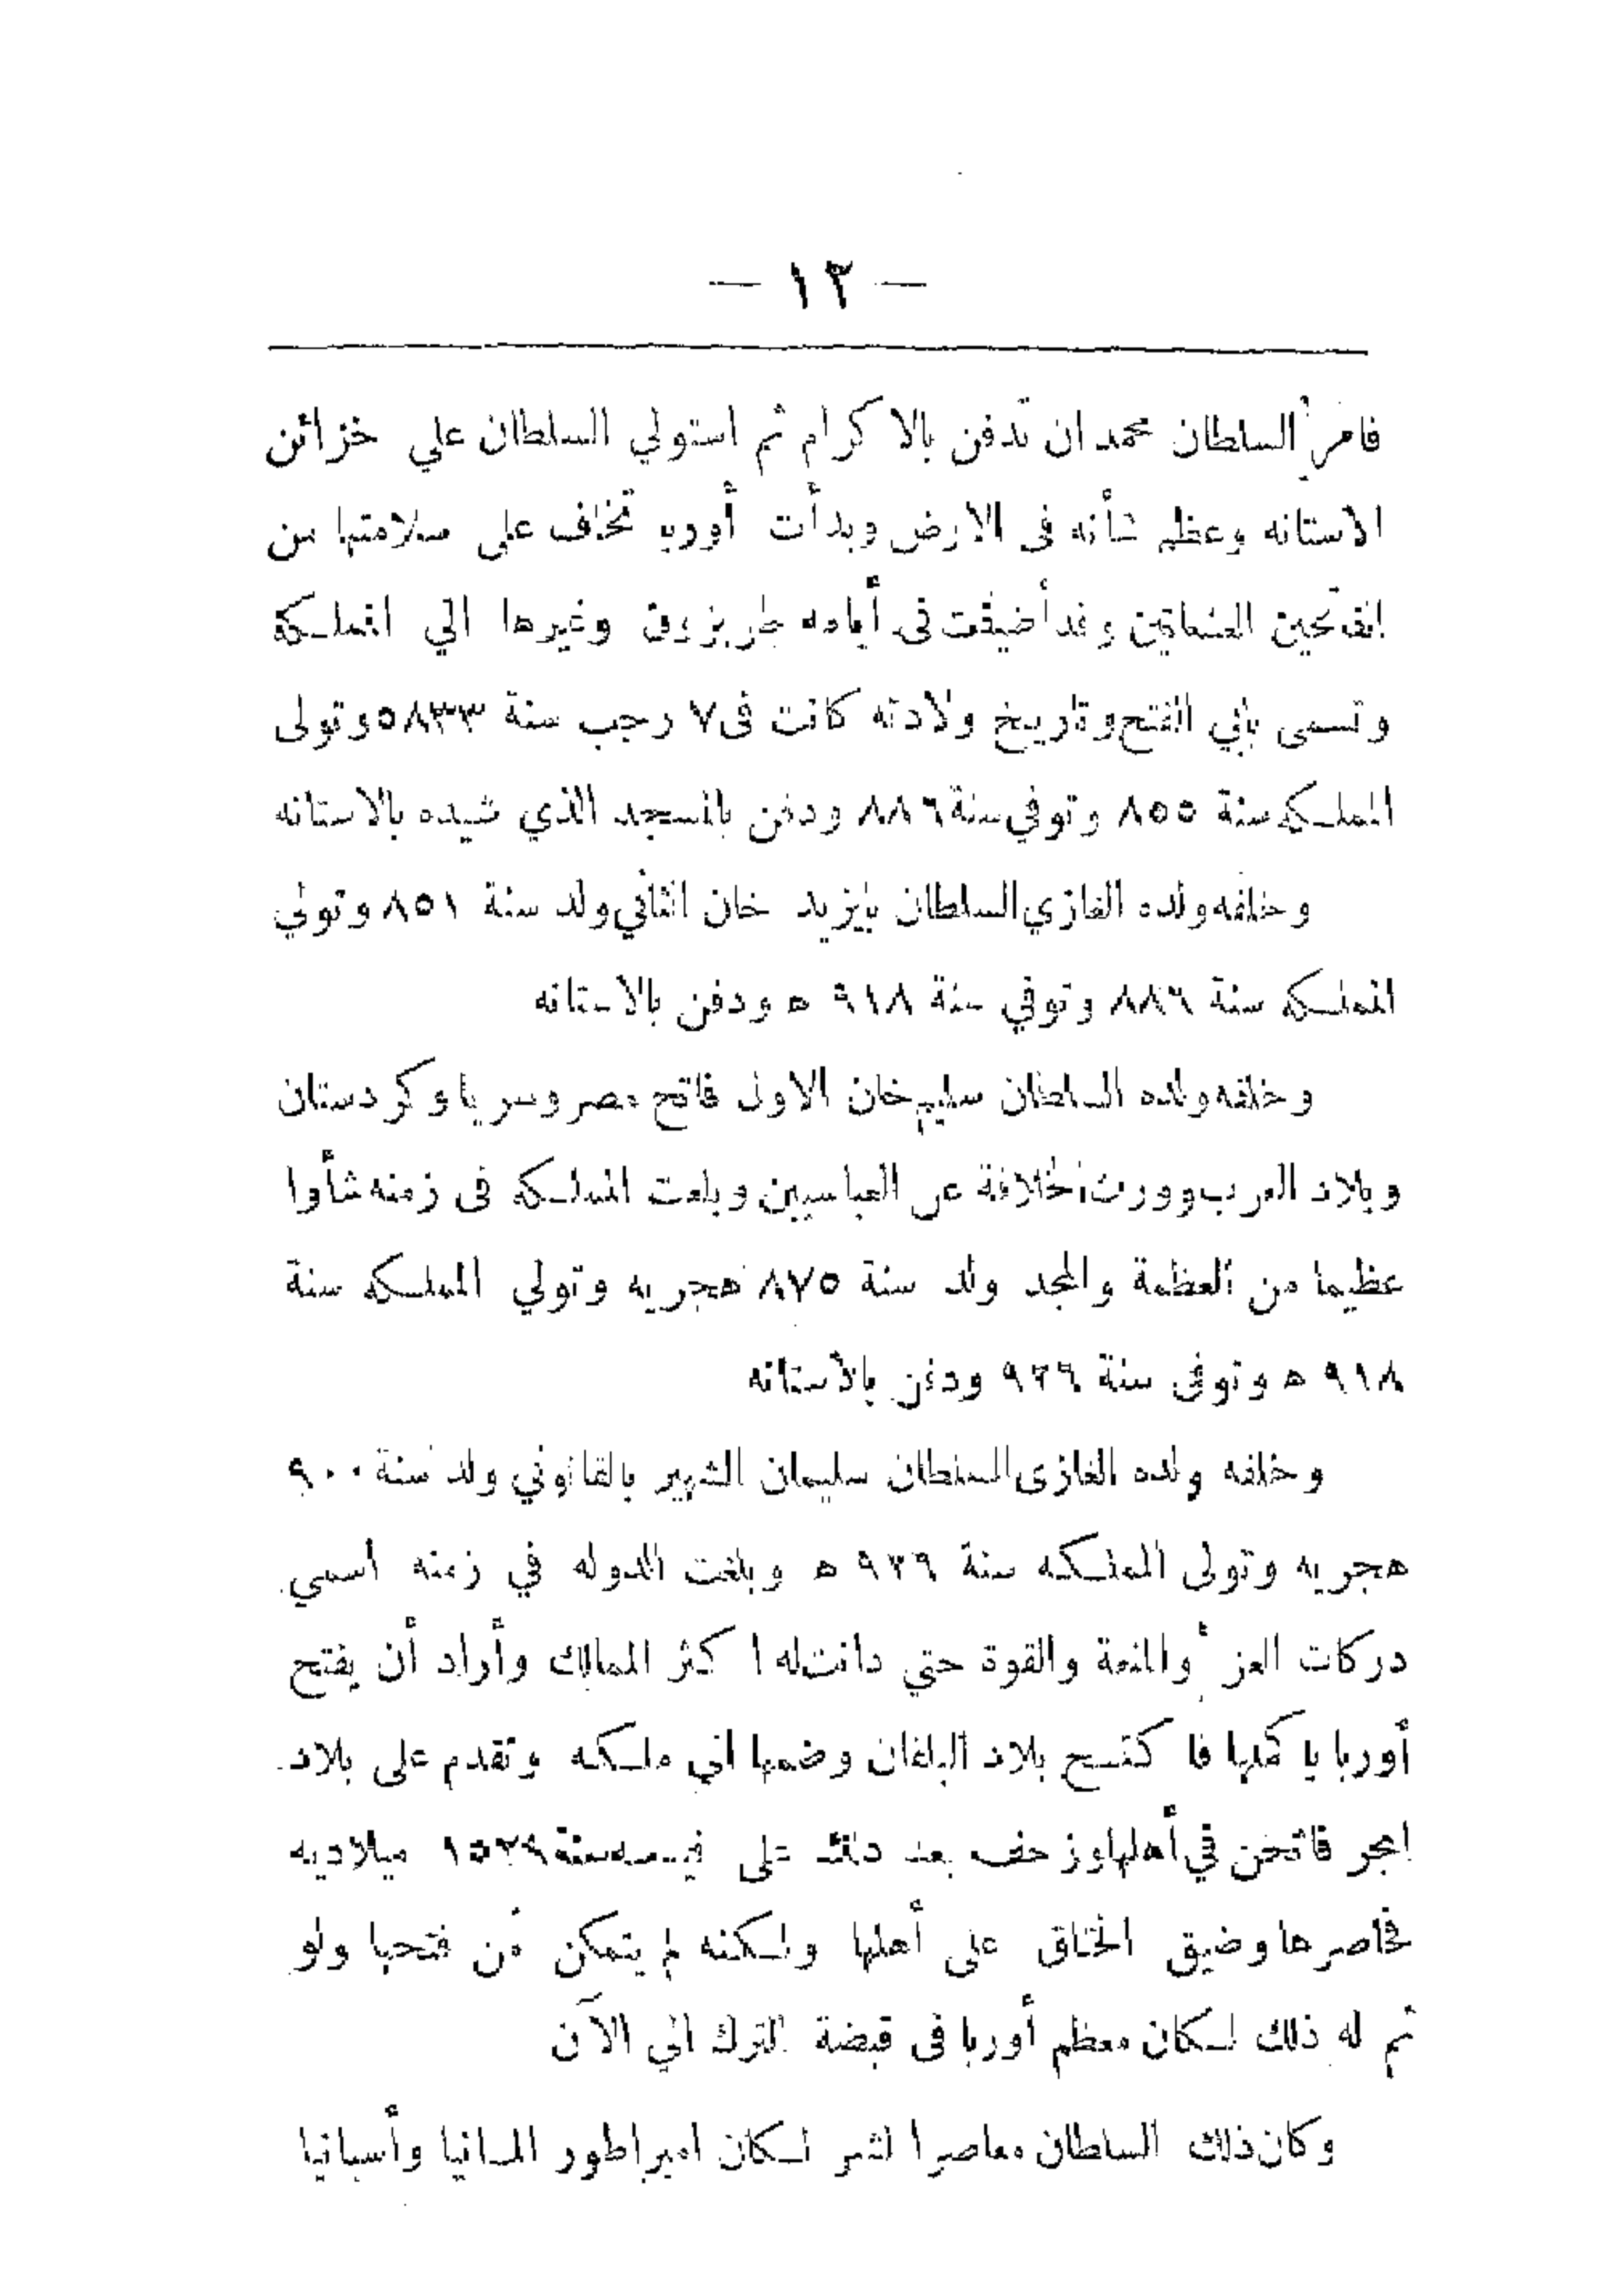 — ١٣ —
فامر السلطان محمد ان تدفن بالاكرام ثم استولي السلطان علي خزائن
الاستانه وعظم شأنه فى الارض وبدأت أوربا تخاف على سلامتها من
الفاتحين العثمانيين وقد أضيفت فى أيامه طربزون وغيرها الي المملكة
وتسمى بابي الفتح وتاريخ ولادته كانت فى ٧ رجب سنة ٨٣٣ه وتولى
المملكه سنة ٨٥٥ وتوفي سنة ٨٨٦ ودفن بالمسجد الذي شيده بالاستانه
وخلفه ولده الغازي السلطان بايزيد خان الثاني ولد سنة ٨٥١ وتولي
المملكه سنة ٨٨٦ وتوفي سنة ٩١٨ ه ودفن بالاستانه
وخلفه ولده السلطان سليم خان الاول فاتح مصر وسريا وكردستان
وبلاد العرب وورث الخلافة عن العباسيين وبلغت المملكه فى زمنه شأوا
عظيما من العظمة والمجد ولد سنة ٨٧٥ هجريه وتولي المملكه سنة
٩١٨ ه وتوفى سنة ٩٢٦ ودفن بالاستانه
وخلفه ولده الغازى السلطان سليمان الشهير بالقانوني ولد سنة ٩٠٠
هجريه وتولى المملكه سنة ٩٢٦ ه وبلغت الدوله في زمنه اسمي
دركات العز والمنعة والقوة حتي دانت له اكثر الممالك وأراد أن يفتح
أوربا باكملها فاكتسح بلاد البلغان وضمها الي ملكه وتقدم على بلاد
المجر فاثخن في أهلها وزحف بعد ذلك على فينه سنة ١٥٢٩ ميلاديه
فحاصرها وضيق الخناق على أهلها ولكنه لم يتمكن من فتحها ولو
تم له ذلك لكان معظم أوربا فى قبضة الترك الي الآن
وكان ذلك السلطان معاصرا لشرلكان امبراطور المانيا وأسبانيا